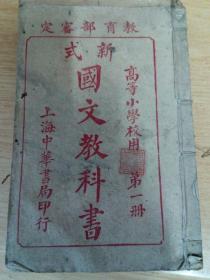 教育部審定
新式
高等小學校用 第一册
國文教科書
上海中華書局印行